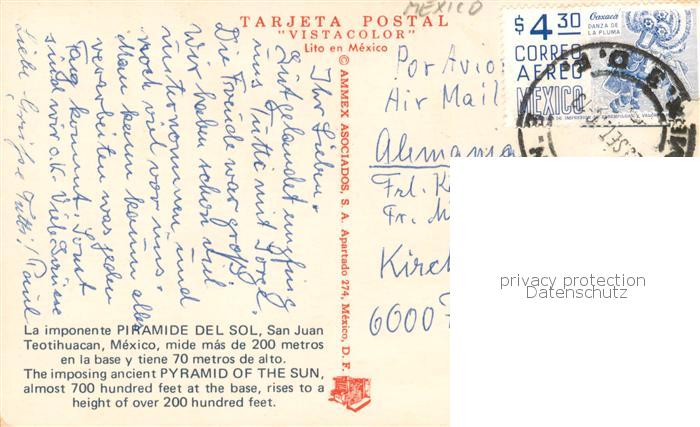 MEXICO
TARJETA POSTAL
"VISTACOLOR"
Lito en México
$4.30
Oaxaca
DANZA DE
LA PLUMA
CORREO
AEREO
MEXICO
Por Avion
Air Mail
Alemania
Frl. K
Fr.
Kirch
6000
© AMMEX ASOCIADOS, S. A. Apartado 274, México, D. F.
Ihr Lieben.
Gut gelandet empfing
uns Tutti mit Jorge.
Die Freude war groß
Wir haben schon viel
unternommen, und
noch viel vor uns.
Man kann kaum alles
verarbeiten was jeden
Tag kommt. Sonst
sind wir o.K. Viele Grüsse
Paul
Liebe Grüße Tutti!
La imponente PIRAMIDE DEL SOL, San Juan
Teotihuacan, México, mide más de 200 metros
en la base y tiene 70 metros de alto.
The imposing ancient PYRAMID OF THE SUN,
almost 700 hundred feet at the base, rises to a
height of over 200 hundred feet.
privacy protection
Datenschutz